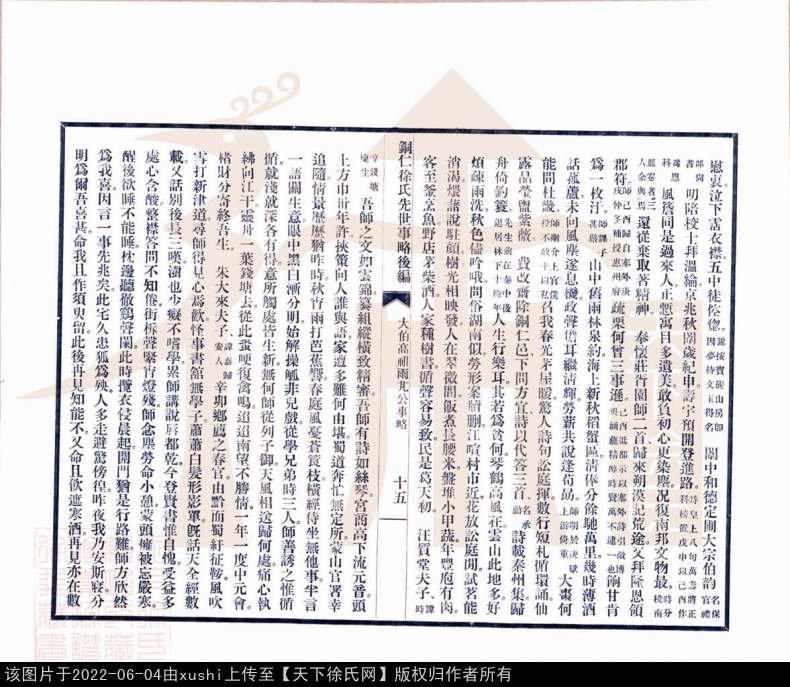 慰衷泣下霑衣襟五中徒惊惚
閣中和德定圃大宗伯韵
明陪校士拜溫綸京兆秋闈歲紀申壽宇預開登進路
風簷同是過來人正慙寓目多遺美敢負初心更染塵況復南邦文物最
還從棄取著精神 奉懷莊胥園師二首歸來朔漠記荒塗又拜隆恩領
郡符 疏栗何曾三事遜 飾甘肯
為一枚汙 山中舊雨林泉約海上新秋稻蟹區清俸分餘馳萬里幾時薄酒
話菰蘆未向風塵遂息機政聲儋耳繼清輝勞薪共說逢荀勗 大棗何
能問杜畿 名我春光茅屋暖驚人詩句訟庭揮數行短札循環誦仙
露晶瑩盥紫薇 費改齋除銅仁邑下問方宜詩以代答三首 詩載秦州集歸
舟倚釣簑 人生行樂耳其若為貧何琴鶴高風在雲山此地多好
煩疎雨洗秋色儘吟哦問俗湖南似勞形案牘刪江喧村市近花放訟庭閒試茗能
消渴煨藷說駐顏樹光相映發人在翠微間飯煮長腰米盤堆小甲蔬年豐庖有肉
客至釜烹魚野店茅柴酒人家種樹書循聲容易致民是葛天初 汪質堂夫子
銅仁徐氏先世事略後編 大伯高祖雨芃公事略 十五
吾師之文如雲錦纂組縱橫致精審吾師有詩如絲琴宮商高下流元音頭
上方巾卅年許挾策向人誰與語家遭多難何由堪蜀道奔忙無定所蒙山官署幸
追隨情景歷歷猶昨時秋宵雨打芭蕉響春庭風憂蒼筤枝橫經侍坐無他事半言
一語關生意眼中黑白漸分明始解操觚非兒戲從學兄弟時三人師善誘之惟循
循就淺就深各有得意所觸處皆生新無何師從列子御天風相送歸何處痛心執
紼向江干靈舟一葉錢塘去從此蛩哽復禽鳴迢迢南望不勝情一年一度中元會
楮財分寄終吾生 朱大來夫子 辛卯鄉薦之春官由黔而蜀紆征鞍風吹
雪打新津道尋師得見心焉歡怪事書館無學子蕭蕭白髮形影單旣話天全經數
載又話別後長三嘆謝也少癡不嗜學累師講說唇都乾今登賢書惟自愧受益多
處心含酸整襟答問不知倦街柝聲緊宵燈殘師念塵勞命小憩蒙頭擁被忘嚴寒
醒後欲睡不能睡枕邊聽徹鷄聲闌此時攬衣侵晨起開門猶是行路難師方欣然
為我喜因言一事先兆矣此宅久患狐為殃人多走避驚傍徨昨夜我乃安斯寢分
明為爾吾喜甚命我且作須臾留此後再見知能不又命且飲遮寒酒再見亦在數
该图片于2022-06-04由xushi上传至【天下徐氏网】版权归作者所有